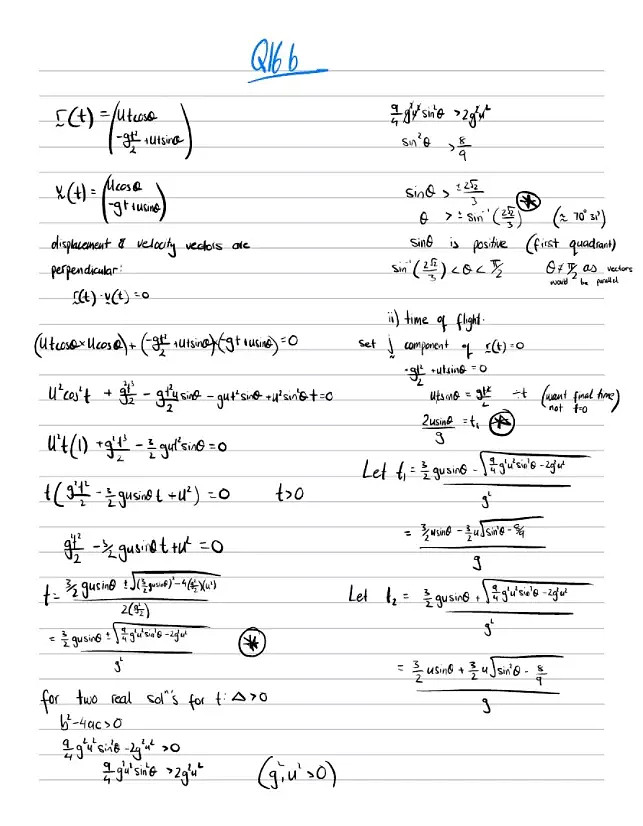 Q16 b
r(t) = (Utcosθ
-gt²/2 + utsinθ)
v(t) = (Ucosθ
-gt + usinθ)
displacement & velocity vectors are
perpendicular:
r(t) · v(t) = 0
(Utcosθ × Ucosθ) + (-gt²/2 + utsinθ)×(-gt + usinθ) = 0
U²cos²t + g²t³/2 - gt²usinθ/2 - gut²sinθ + u²sin²θt = 0
U²t(1) + g²t³/2 - 3/2 gut²sinθ = 0
t(g²t²/2 - 3/2 gusinθt + u²) = 0 t>0
g²t²/2 - 3/2 gusinθt + u² = 0
t = (3/2 gusinθ ± √((3/2 gusinθ)² - 4(g²/2)(u²))) / 2(g²/2)
= (3/2 gusinθ ± √(9/4 g²u²sin²θ - 2g²u²)) / g² *
for two real solⁿ's for t: Δ>0
b²-4ac>0
9/4 g²u²sin²θ - 2g²u² > 0
9/4 g²u²sin²θ > 2g²u² (g², u² > 0)
9/4 g²u²sin²θ > 2g²u²
sin²θ > 8/9
sinθ > ±2√2/3 *
θ > ± sin⁻¹(2√2/3) (≈ 70° 31')
sinθ is positive (first quadrant)
sin⁻¹(2√2/3) < θ < π/2 θ≠π/2 as vectors
would be parallel
ii) time of flight.
set j component of r(t) = 0
-gt²/2 + utsinθ = 0
utsinθ = gt²/2 ÷t (want final time
not t=0)
2usinθ/g = t, *
Let t₁ = (3/2 gusinθ - √(9/4 g²u²sin²θ - 2g²u²)) / g²
= (3/2 usinθ - 3/2 u√(sin²θ - 8/9)) / g
Let t₂ = (3/2 gusinθ + √(9/4 g²u²sin²θ - 2g²u²)) / g²
= (3/2 usinθ + 3/2 u√(sin²θ - 8/9)) / g